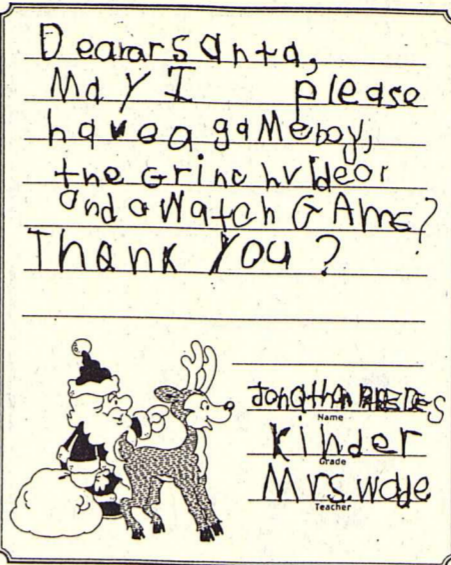 Dearar Santa,
May I please
have a gameboy,
the Grinch video
and a Watch GAme?
Thank You?
Jonathan
Name
Kinder
Grade
Mrs. Wade
Teacher